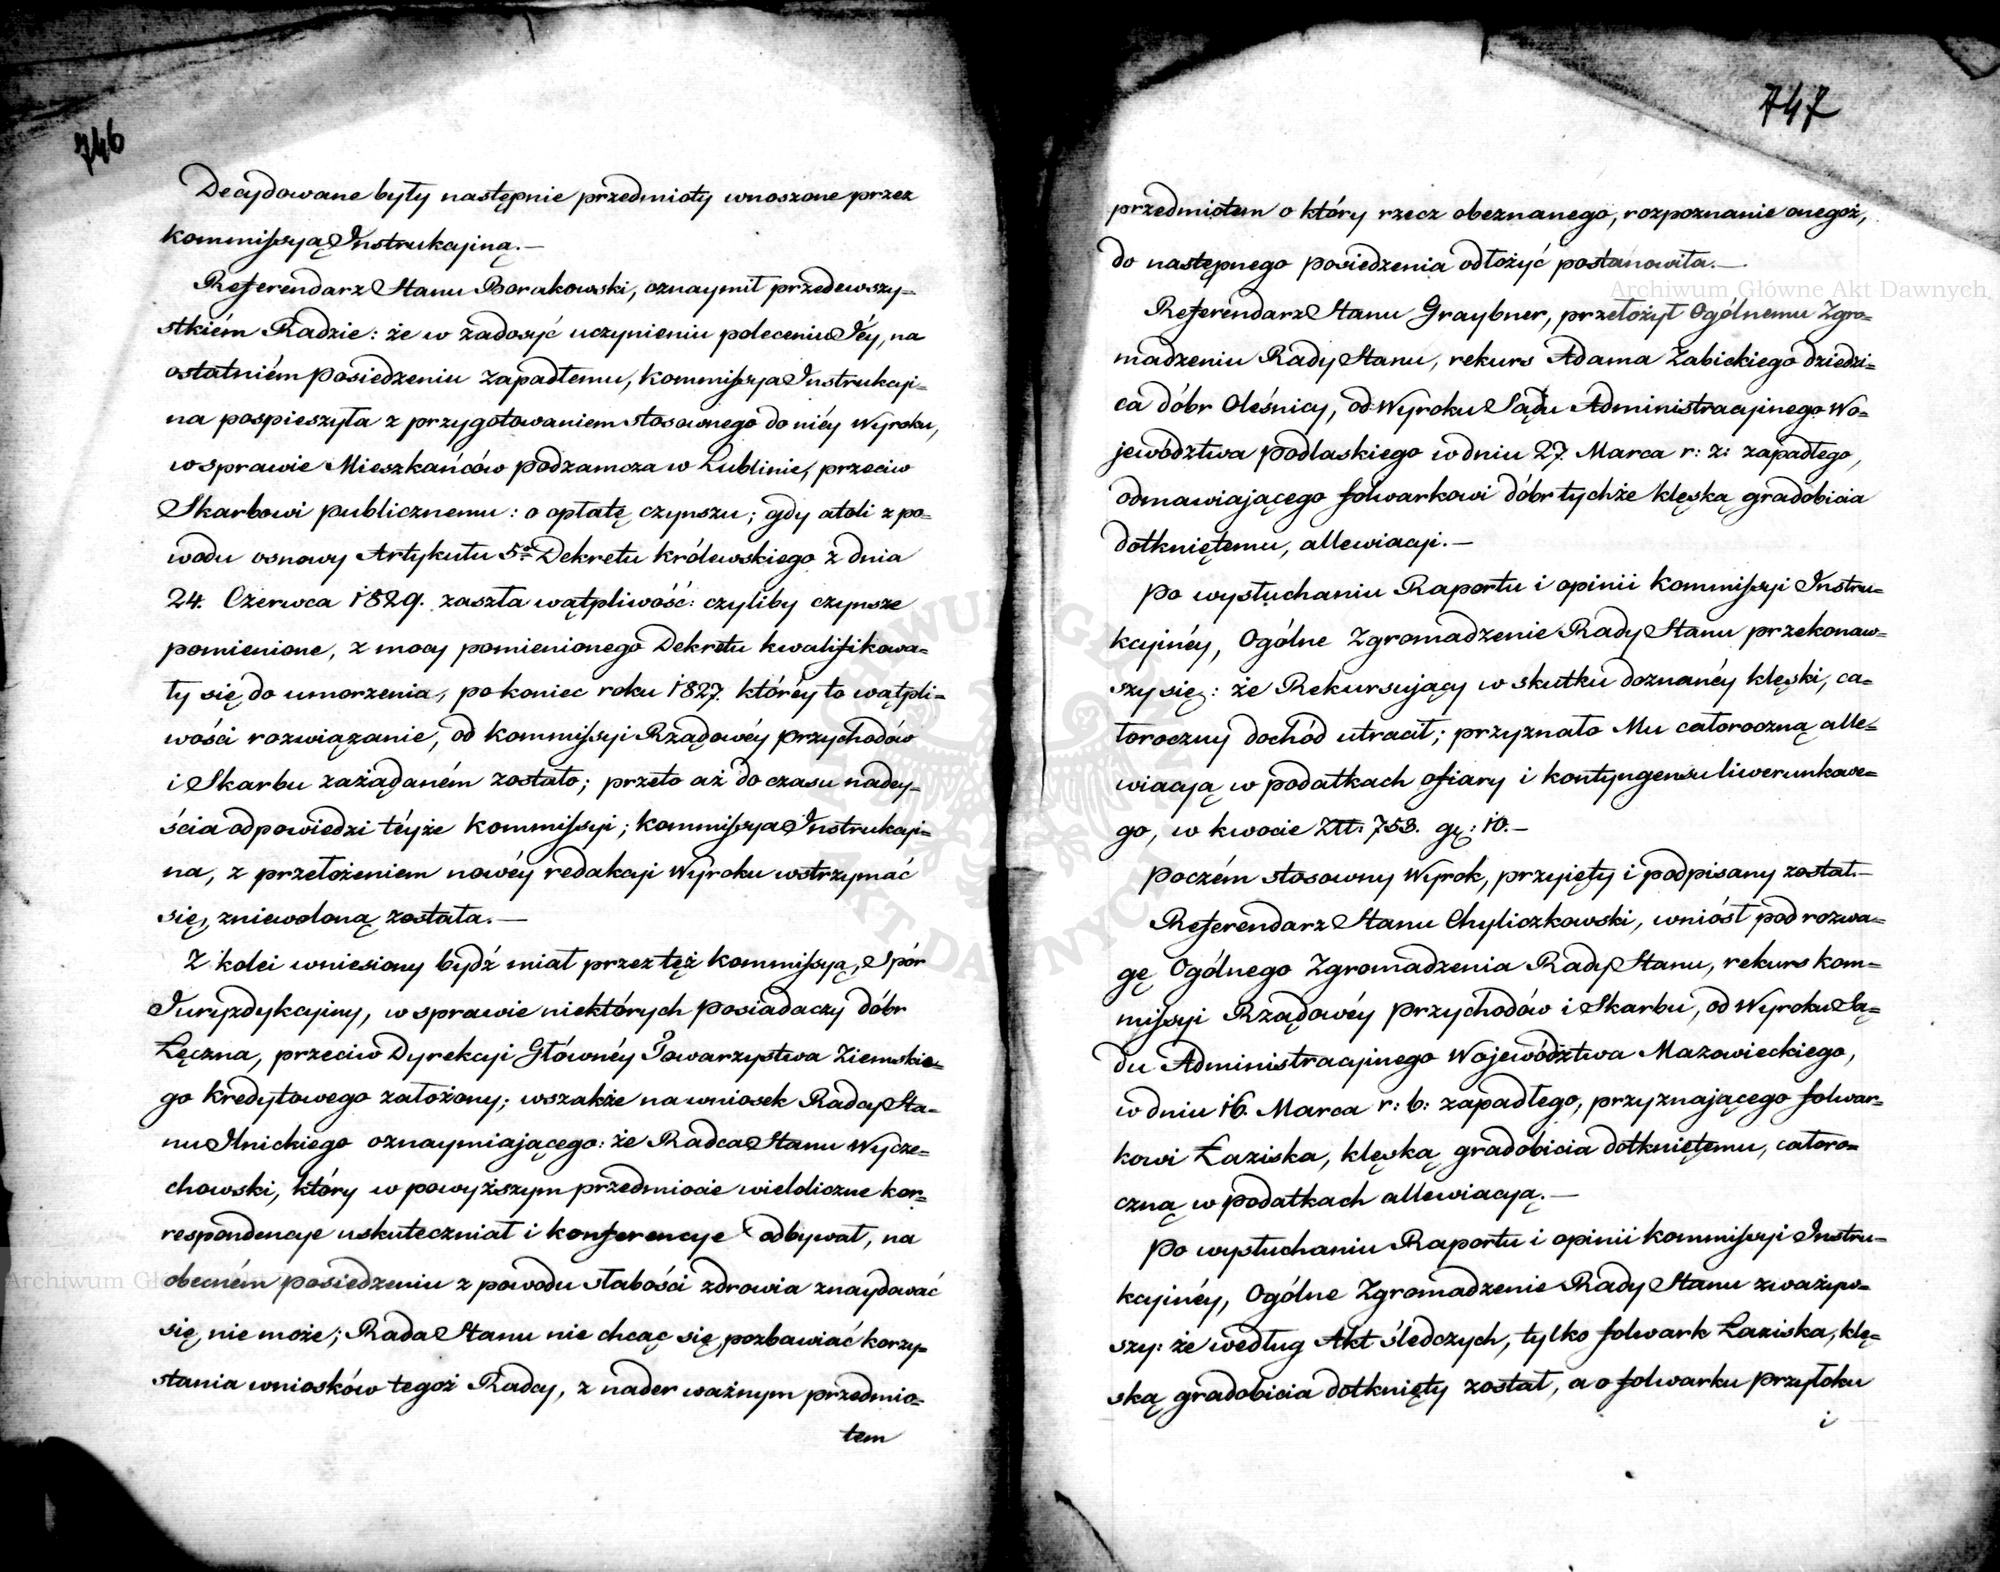 746
Decydowane były następnie przedmioty wnoszone przez
Kommissyą Instrukcyiną.—
Referendarz Stanu Borakowski, oznaymił przedewszy=
stkiém Radzie: że w zadosyć uczynieniu poleceniu Jéy, na
ostatniém posiedzeniu zapadłemu, Kommissya Instrukcyi=
na pospieszyła z przygotowaniem stosownego do niéy Wyroku,
w sprawie Mieszkańców Podzamcza w Lublinie, przeciw
Skarbowi publicznemu: o opłatę czynszu; gdy atoli z po=
wodu osnowy Artykułu 5go Dekretu Królewskiego z dnia
24. Czerwca 1829. zaszła wątpliwość: czyliby czynsze
pomienione, z mocy pomienionego Dekretu kwalifikowa=
ły się do umorzenia, po koniec roku 1827. któréy to wątpli=
wości rozwiązanie, od Kommissyi Rządowéy Przychodów
i Skarbu zażądaném zostało; przeto aż do czasu nadey=
ścia odpowiedzi téyże Kommissyi; Kommissya Instrukcyi=
na, z przełożeniem nowéy redakcyi Wyroku wstrzymać
się, zniewoloną została.—
Z kolei wniesiony bydź miał przez tęż Kommissyą, Spór
Juryzdykcyiny, w sprawie niektórych Posiadaczy dóbr
Łęczna, przeciw Dyrekcyi Głównéy Towarzystwa Ziemskie=
go Kredytowego założony; wszakże na wniosek Radcy Sta=
nu Ilnickiego oznaymiaiącego: że Radca Stanu Wycze=
chowski, który w powyższym przedmiocie wieloliczne kor=
respondencye uskuteczniał i konferencye odbywał, na
obecném posiedzeniu z powodu słabości zdrowia znaydować
się, nie może; Rada Stanu nie chcąc się, pozbawiać korzy=
stania wniosków tegoż Radcy, z nader ważnym przedmio=
tem
747
przedmiotem o który rzecz obeznanego, rozpoznanie onegoż,
do następnego posiedzenia odłożyć postanowiła.—
Referendarz Stanu Graybner, przełożył Ogólnemu Zgro=
madzeniu Rady Stanu, rekurs Adama Zabickiego dziedzi=
ca dóbr Oleśnicy, od Wyroku Sądu Administracyinego Wo=
jewództwa Podlaskiego w dniu 27. Marca r: z: zapadłego,
odmawiającego folwarkowi dóbr tychże klęską gradobicia
dotkniętemu, allewiacyi.—
Po wysłuchaniu Raportu i opinii Kommissyi Instru=
kcyinéy, Ogólne Zgromadzenie Rady Stanu przekonaw=
szy się: że Rekursujący w skutku doznanéy klęski, ca=
łoroczny dochód utracił; przyznało Mu całoroczną alle=
wiacyą w podatkach ofiary i kontyngensu liwerunkowe=
go, w kwocie Złł: 753. gę: 10.—
Poczém stosowny Wyrok, przyięty i podpisany został.—
Referendarz Stanu Chyliczkowski, wniósł pod rozwa=
gę Ogólnego Zgromadzenia Rady Stanu, rekurs Kom=
missyi Rządowéy Przychodów i Skarbu, od Wyroku Są=
du Administracyinego Województwa Mazowieckiego,
w dniu 16. Marca r: b: zapadłego, przyznającego folwar=
kowi Łaziska, klęską gradobicia dotkniętemu, całoro=
czną w podatkach allewiacyą.—
Po wysłuchaniu Raportu i opinii Kommissyi Instru=
kcyinéy, Ogólne Zgromadzenie Rady Stanu zważyw=
szy: że według Akt śledczych, tylko folwark Łaziska, klę=
ską gradobicia dotknięty został, a o folwarku Przyłoku
i
Archiwum Główne Akt Dawnych